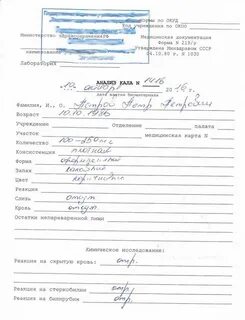 Код формы по ОКУД
Код учреждения по ОКПО
Министерство здравоохранения
Медицинская документация
Форма N 219/у
Утверждена Минздравом СССР
04.10.80 г. N 1030
наименование
Лаборатория
АНАЛИЗ КАЛА N 1416
12 2016 г.
дата взятия биоматериала
Фамилия, И., О. Петров Петр Петрович
Возраст 10.10.1986
Учреждение Отделение палата
Участок медицинская карта N
Количество 100-250
Консистенция плотная
Форма оформленный
Запах
Цвет коричневый
Слизь отсут
Кровь отсут
Остатки непереваренной пищи
Химическое исследование:
Реакция на скрытую кровь: отр.
Реакция на стеркобилин отр.
Реакция на билирубин отр.